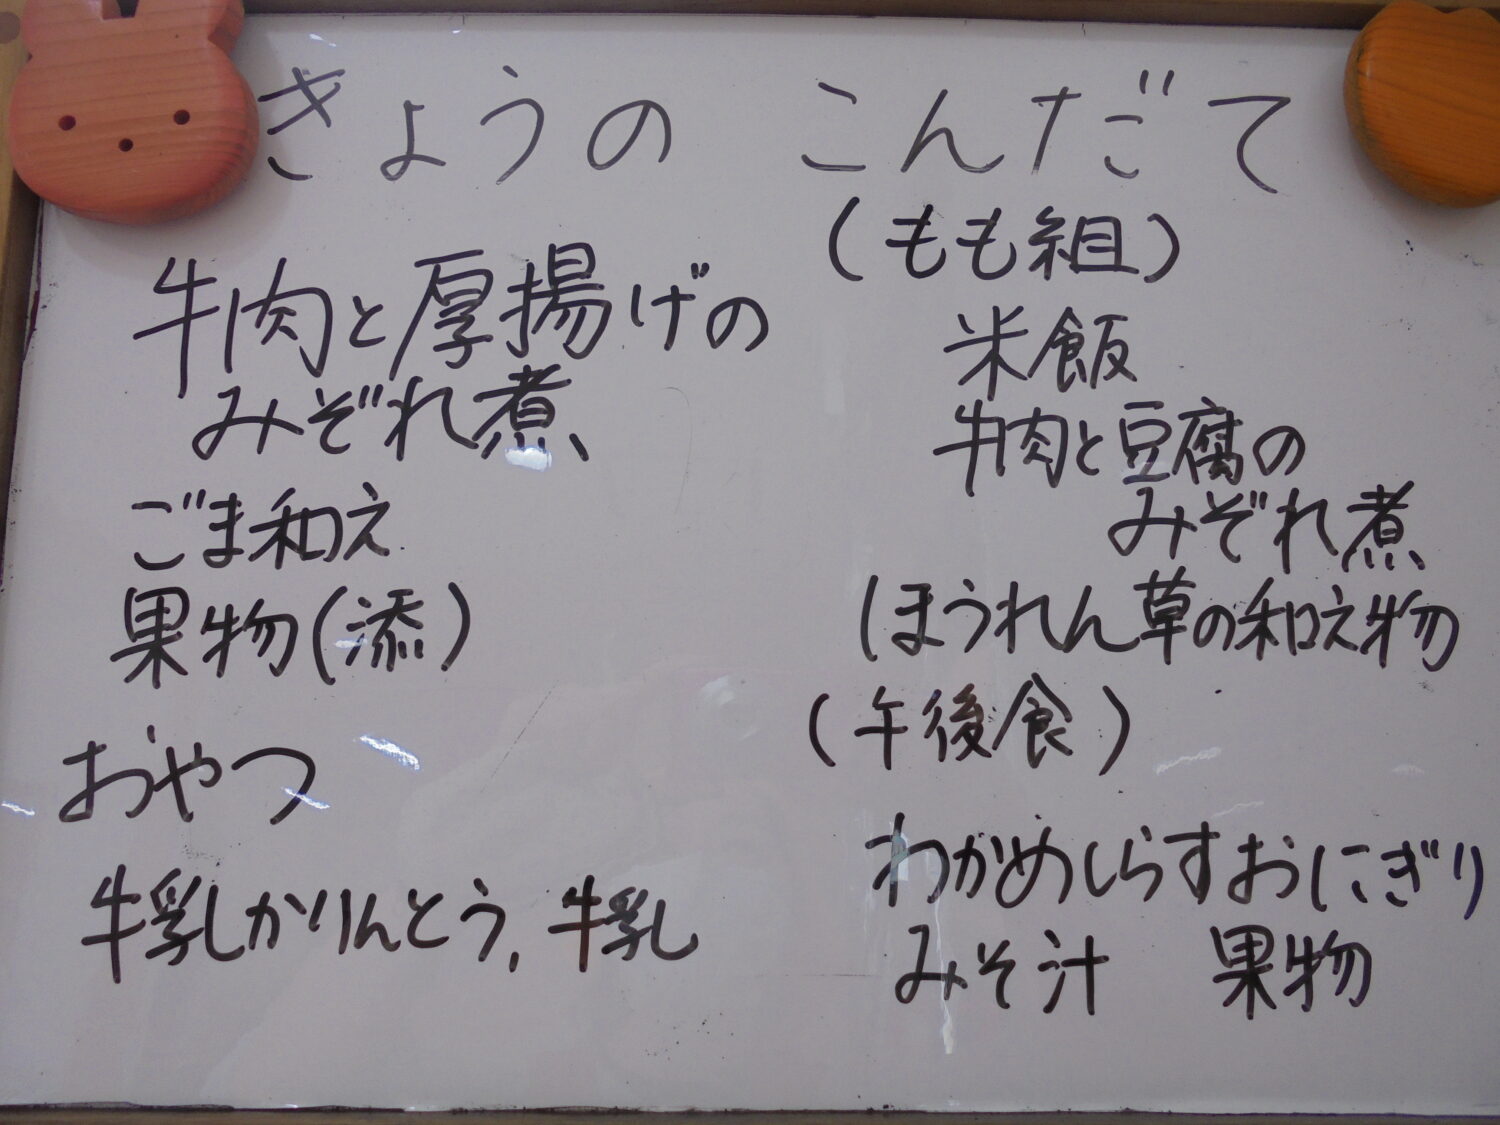 きょうの こんだて
牛肉と厚揚げの
みぞれ煮
ごま和え
果物(添)
おやつ
牛乳しかりんとう,牛乳
(もも組)
米飯
牛肉と豆腐の
みぞれ煮
ほうれん草の和え物
(午後食)
わかめしらすおにぎり
みそ汁 果物